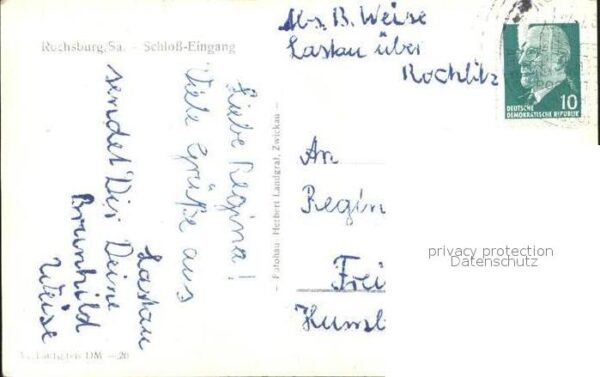 Rochsburg, Sa. – Schloß-Eingang
Liebe Regina!
Viele Grüße aus
Lastau
sendet Dir Deine
Brunhild
Weise
– Fotohaus Herbert Landgraf, Zwickau –
Abs. B. Weise
Lastau über
Rochlitz
10
DEUTSCHE
DEMOKRATISCHE REPUBLIK
An
Regin
Frei
privacy protection
Datenschutz
DM –.20